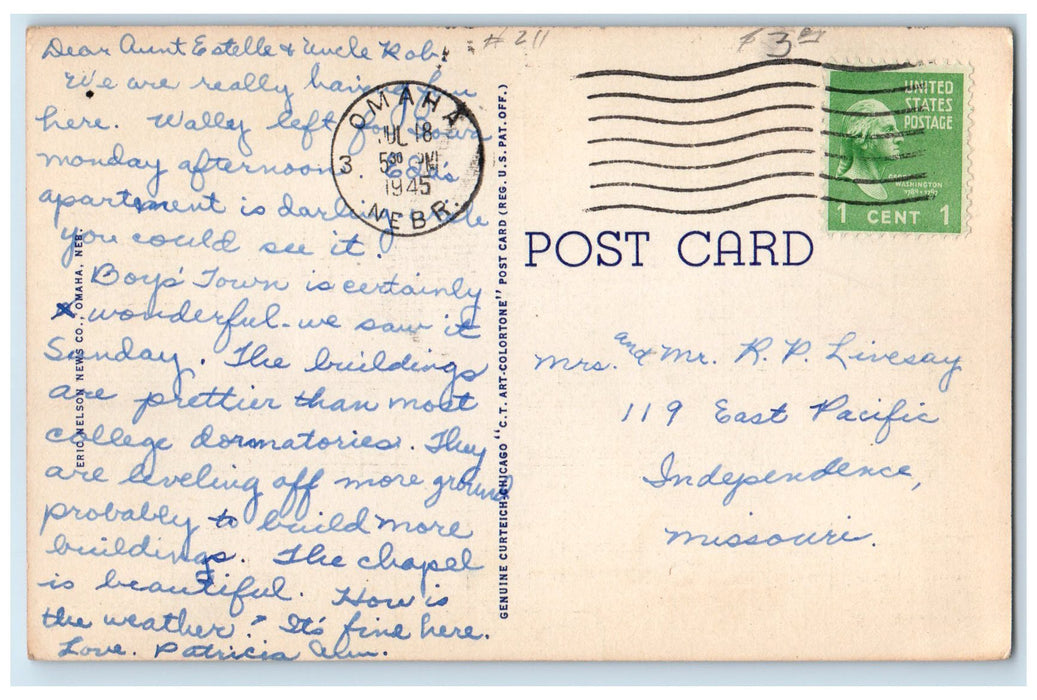 Dear Aunt Estelle & Uncle Rob,
We are really having fun
here. Wally left for
monday afternoon. Ed's
apartment is darling
you could see it.
Boys' Town is certainly
wonderful - we saw it
Sunday. The buildings
are prettier than most
college dormatories. They
are leveling off more ground
probably to build more
buildings. The chapel
is beautiful. How is
the weather? It's fine here.
Love. Patricia Ann.
# 211
OMAHA
JUL 18
5 30 PM
1945
3.
NEBR.
ERIC NELSON NEWS CO., OMAHA, NEB.
GENUINE CURTEICH-CHICAGO "C.T. ART-COLORTONE" POST CARD (REG. U.S. PAT. OFF.)
UNITED
STATES
POSTAGE
WASHINGTON
1789-1797
1 CENT 1
POST CARD
Mrs. and Mr. R. P. Livesay
119 East Pacific
Independence,
Missouri.